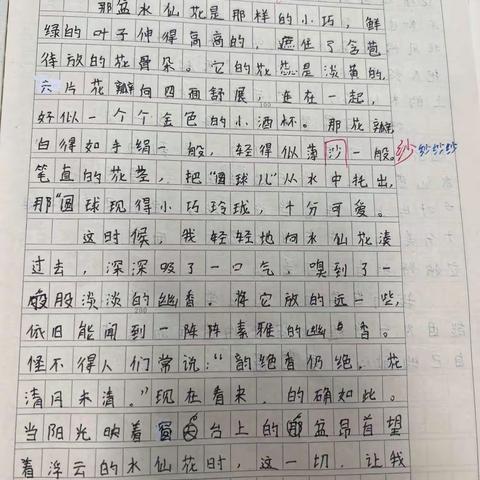 那盆水仙花是那样的小巧，鲜
绿的叶子伸得高高的，遮住了含苞
待放的花骨朵。它的花蕊是淡黄的，
六片花瓣向四面舒展，连在一起，
好似一个个金色的小酒杯。那花瓣
白得如手绢一般，轻得似薄沙一般。纱纱纱纱
笔直的花茎，把“圆球儿”从水中托出，
那“圆球现得小巧玲珑，十分可爱。
这时候，我轻轻地向水仙花凑
过去，深深吸了一口气，嗅到了一
股淡淡的幽香。将它放的远一些，
依旧能闻到一阵阵素雅的幽香。
怪不得人们常说：“韵绝香仍绝，花
清月未清。”现在看来，的确如此。
当阳光映着窗台上的那盆昂首望
着浮云的水仙花时，这一切，让我